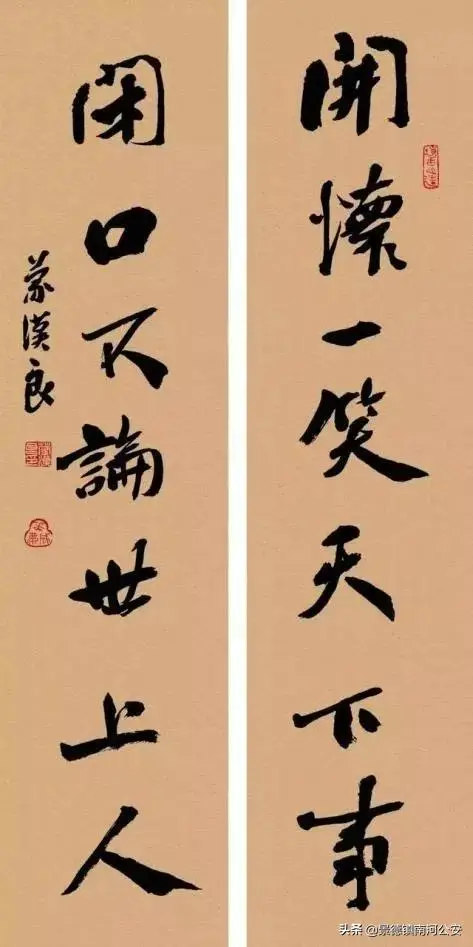 開懷一笑天下事
閉口不論世上人
蒙漢良
头条 @景德镇南河公安